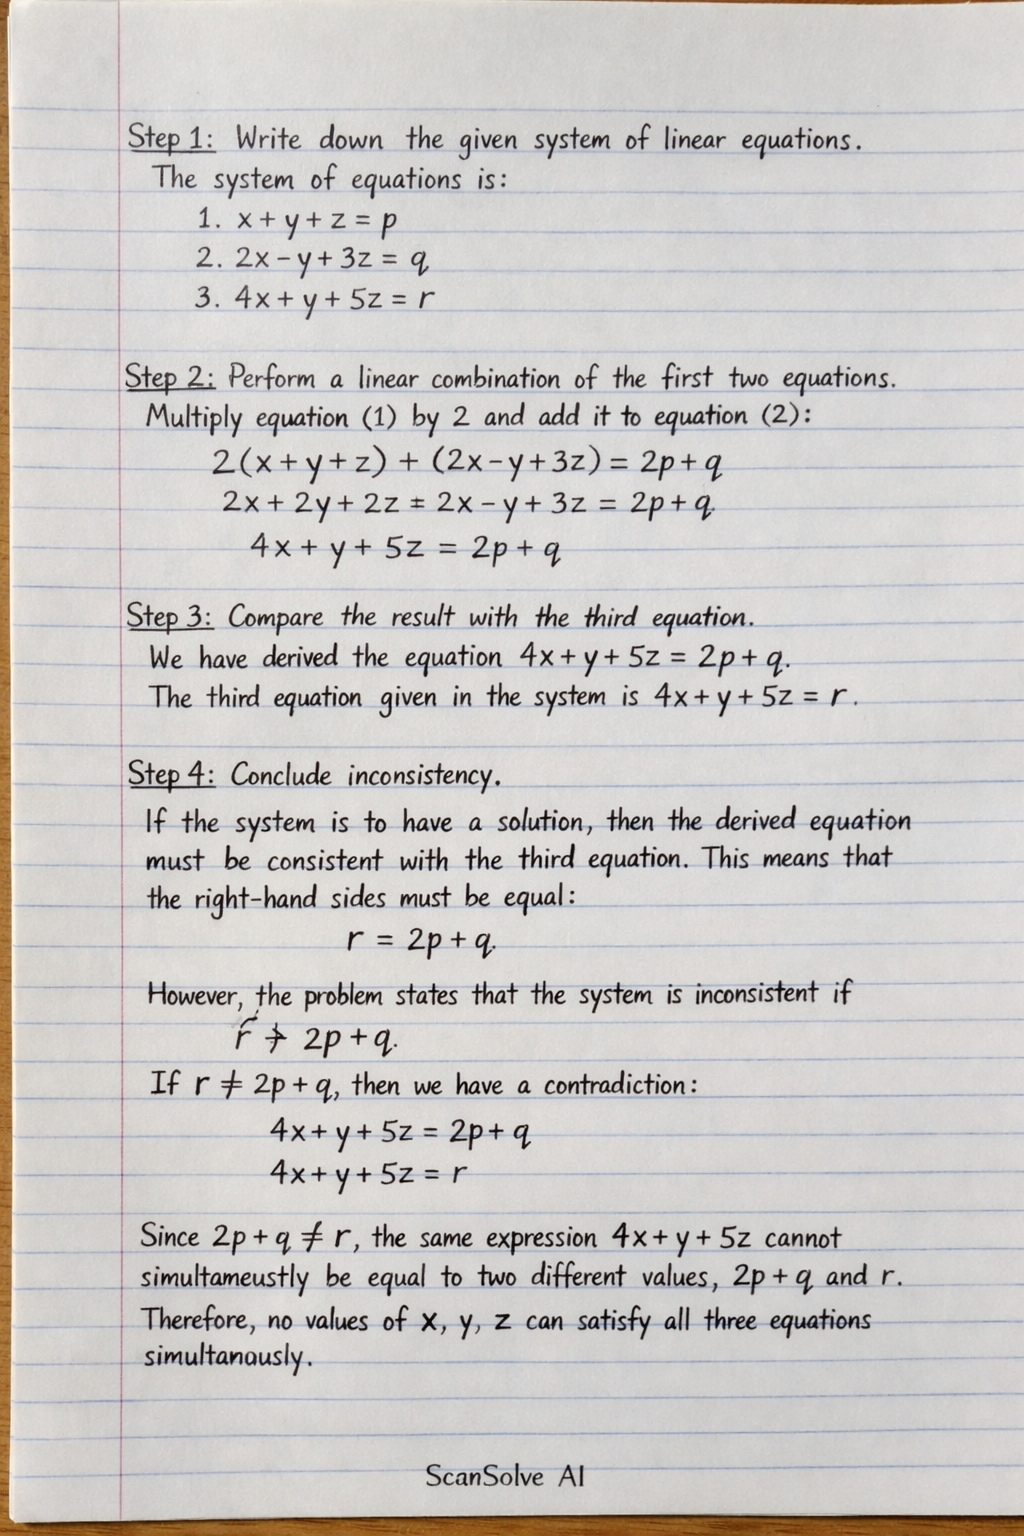 Step 1: Write down the given system of linear equations.
The system of equations is:
1. x + y + z = p
2. 2x - y + 3z = q
3. 4x + y + 5z = r
Step 2: Perform a linear combination of the first two equations.
Multiply equation (1) by 2 and add it to equation (2):
2(x + y + z) + (2x - y + 3z) = 2p + q
2x + 2y + 2z ± 2x - y + 3z = 2p + q
4x + y + 5z = 2p + q
Step 3: Compare the result with the third equation.
We have derived the equation 4x + y + 5z = 2p + q.
The third equation given in the system is 4x + y + 5z = r.
Step 4: Conclude inconsistency.
If the system is to have a solution, then the derived equation
must be consistent with the third equation. This means that
the right-hand sides must be equal:
r = 2p + q.
However, the problem states that the system is inconsistent if
r ≠ 2p + q.
If r ≠ 2p + q, then we have a contradiction:
4x + y + 5z = 2p + q
4x + y + 5z = r
Since 2p + q ≠ r, the same expression 4x + y + 5z cannot
simultameustly be equal to two different values, 2p + q and r.
Therefore, no values of x, y, z can satisfy all three equations
simultanously.
ScanSolve AI